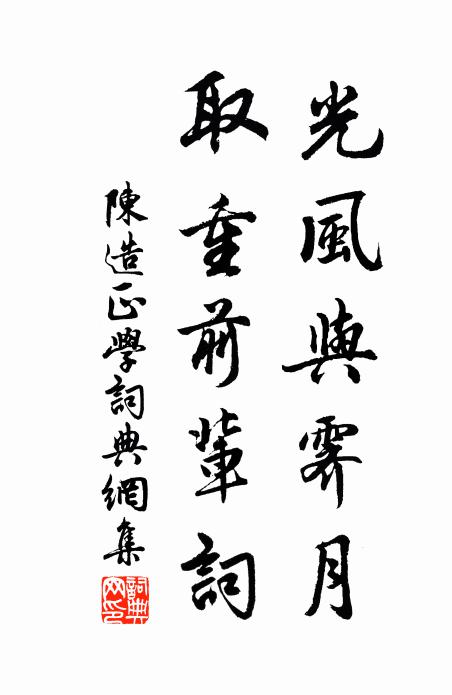 光風與霽月
取重前輩詞
陳造正學詞典網集
詞典网印